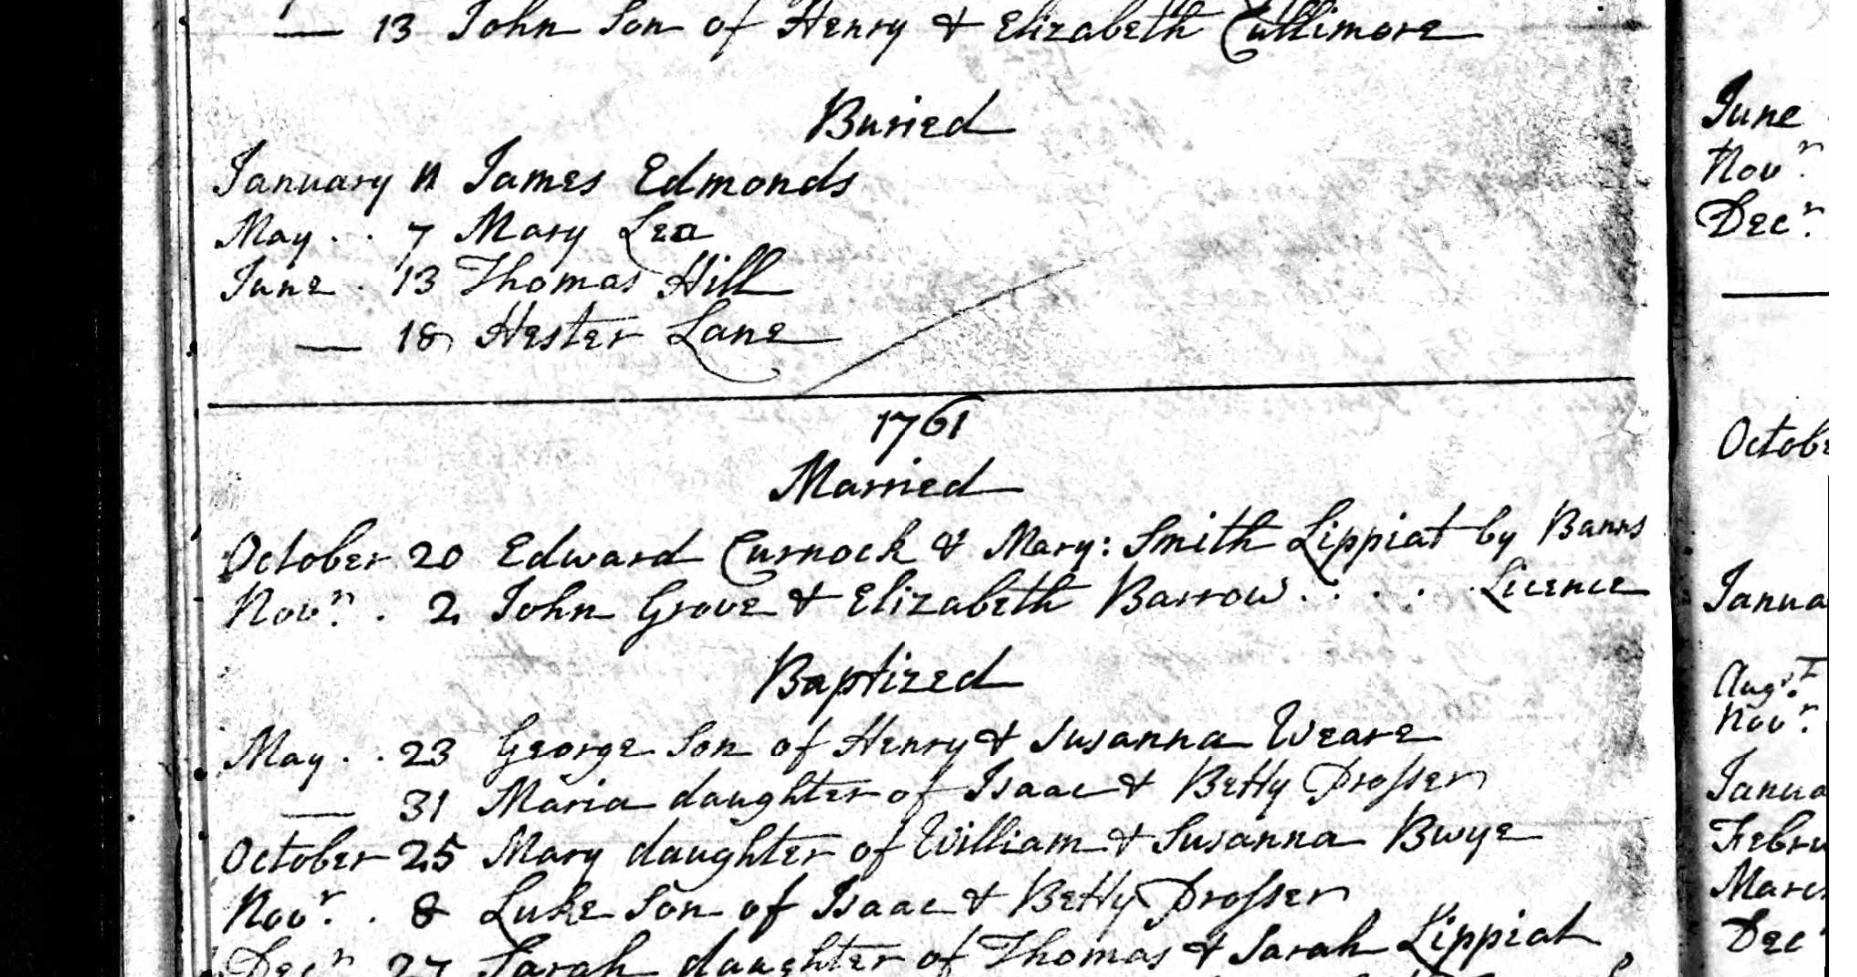 — 13 John Son of Henry & Elizabeth Cullimore
Buried
January 11 James Edmonds
May . . 7 Mary Lea
June . 13 Thomas Hill
— 18 Hester Lane
1761
Married
October 20 Edward Curnock & Mary: Smith Lippiat by Banns
Novr. . 2 John Grove & Elizabeth Barrow . . . . Licence
Baptized
May . . 23 George Son of Henry & Susanna Weare
— 31 Maria daughter of Isaac & Betty Prosser
October 25 Mary daughter of William & Susanna Bwye
Novr. . 8 Luke Son of Isaac & Betty Prosser
Decr. 27 Sarah daughter of Thomas & Sarah Lippiat
June
Novr.
Decr.
Octobe
Janua
Augst.
Novr.
Janua
Febru
Marc
Dec